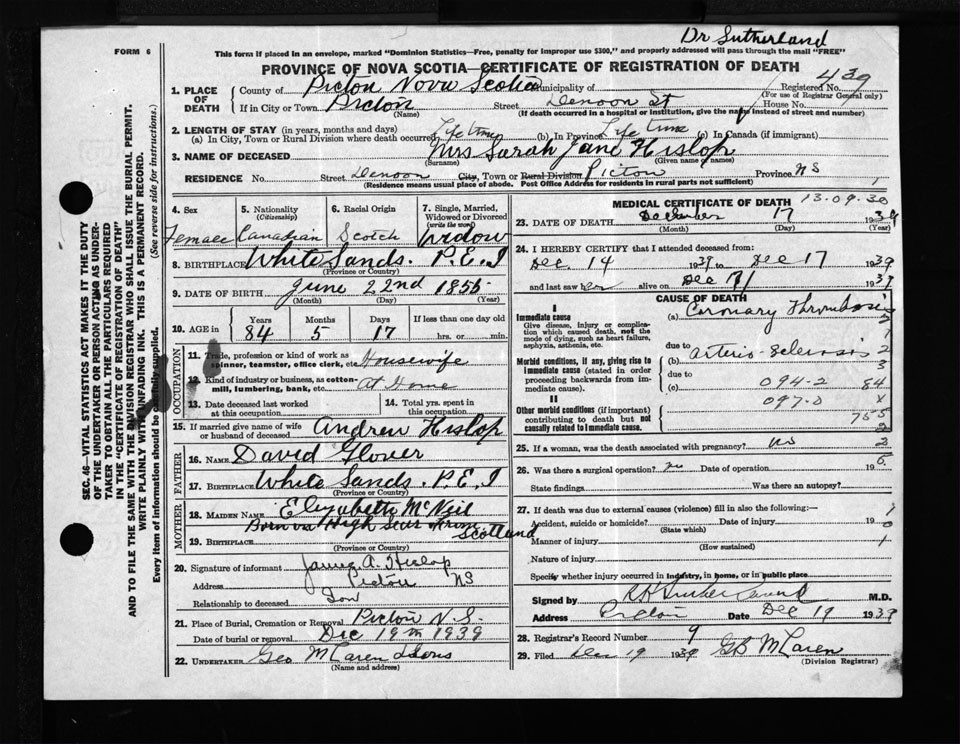 Dr Sutherland
FORM 6
This form if placed in an envelope, marked "Dominion Statistics—Free, penalty for improper use $300," and properly addressed will pass through the mail "FREE"
PROVINCE OF NOVA SCOTIA—CERTIFICATE OF REGISTRATION OF DEATH
SEC. 46—VITAL STATISTICS ACT MAKES IT THE DUTY
OF THE UNDERTAKER OR PERSON ACTING AS UNDER-
TAKER TO OBTAIN ALL THE PARTICULARS REQUIRED
IN THE "CERTIFICATE OF REGISTRATION OF DEATH"
AND TO FILE THE SAME WITH THE DIVISION REGISTRAR WHO SHALL ISSUE THE BURIAL PERMIT.
WRITE PLAINLY WITH UNFADING INK. THIS IS A PERMANENT RECORD.
Every item of information should be carefully supplied. (See reverse side for instructions.)
1. PLACE OF DEATH
County of Pictou Nova Scotia Municipality of Registered No. 439
(For use of Registrar General only)
If in City or Town Pictou Street Denoon St House No.
(Name) (If death occurred in a hospital or institution, give the name instead of street and number)
2. LENGTH OF STAY (in years, months and days)
(a) In City, Town or Rural Division where death occurred Life time (b) In Province Life time (c) In Canada (if immigrant)
3. NAME OF DECEASED Mrs Sarah Jane Hislop
(Surname) (Given name or names)
RESIDENCE No. Street Denoon City, Town or Rural Division Pictou Province NS
(Residence means usual place of abode. Post Office Address for residents in rural parts not sufficient)
1
4. Sex Female
5. Nationality (Citizenship) Canadian
6. Racial Origin Scotch
7. Single, Married, Widowed or Divorced (write the word) Widow
8. BIRTHPLACE White Sands. P.E.I
(Province or Country)
9. DATE OF BIRTH June 22nd 1855
(Month) (Day) (Year)
10. AGE in Years 84 Months 5 Days 17 If less than one day old hrs. or min.
OCCUPATION
11. Trade, profession or kind of work as spinner, teamster, office clerk, etc. Housewife
12. Kind of industry or business, as cotton-mill, lumbering, bank, etc. At Home
13. Date deceased last worked at this occupation
14. Total yrs. spent in this occupation
15. If married give name of wife or husband of deceased Andrew Hislop
FATHER
16. NAME David Glover
17. BIRTHPLACE White Sands. P.E.I
(Province or Country)
MOTHER
18. MAIDEN NAME Elizabeth McNeil
Born on High Seas from Scotland
19. BIRTHPLACE
(Province or Country)
20. Signature of informant James A. Hislop
Address Pictou NS
Relationship to deceased Son
21. Place of Burial, Cremation or Removal Pictou N.S.
Date of burial or removal Dec 19th 1939
22. UNDERTAKER Geo McLaren & Sons
(Name and address)
MEDICAL CERTIFICATE OF DEATH 13-09-30
23. DATE OF DEATH December 17 1939
(Month) (Day) (Year)
24. I HEREBY CERTIFY that I attended deceased from:
Dec. 14 1939 to Dec 17 1939
and last saw her alive on Dec 17 1939
CAUSE OF DEATH
I
Immediate cause
Give disease, injury or complication which caused death, not the mode of dying, such as heart failure, asphyxia, asthenia, etc.
(a) Coronary Thrombosis
due to
Morbid conditions, if any, giving rise to immediate cause (stated in order proceeding backwards from immediate cause).
(b) arterio-sclerosis
due to
(c) 094-2 84
097.0
II
Other morbid conditions (if important) contributing to death but not causally related to immediate cause.
755
25. If a woman, was the death associated with pregnancy? no 2
26. Was there a surgical operation? no Date of operation 19
State findings Was there an autopsy?
27. If death was due to external causes (violence) fill in also the following:—
Accident, suicide or homicide? Date of injury 19
(State which)
Manner of injury 1
(How sustained)
Nature of injury
Specify whether injury occurred in industry, in home, or in public place
Signed by Sutherland M.D.
Address Pictou Date Dec 19 1939
28. Registrar's Record Number 9
29. Filed Dec 19 1939 GB McLaren
(Division Registrar)